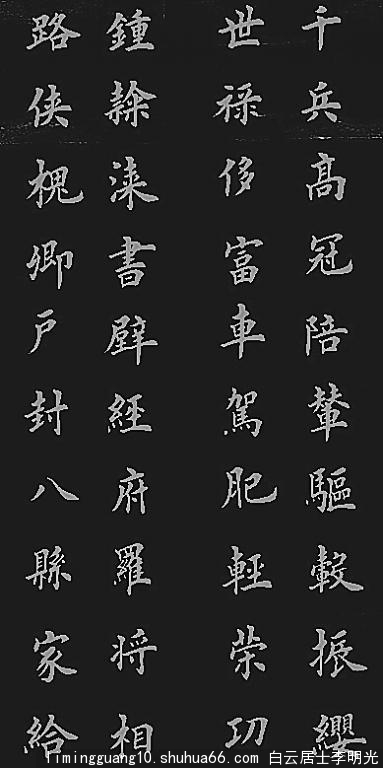 千兵髙冠陪輦驅轂振纓
世禄侈富車駕肥輕策功
鍾隸漆書壁經府羅将相
路侠槐卿戶封八縣家給
limingguang10.shuhua66.com 白云居士李明光